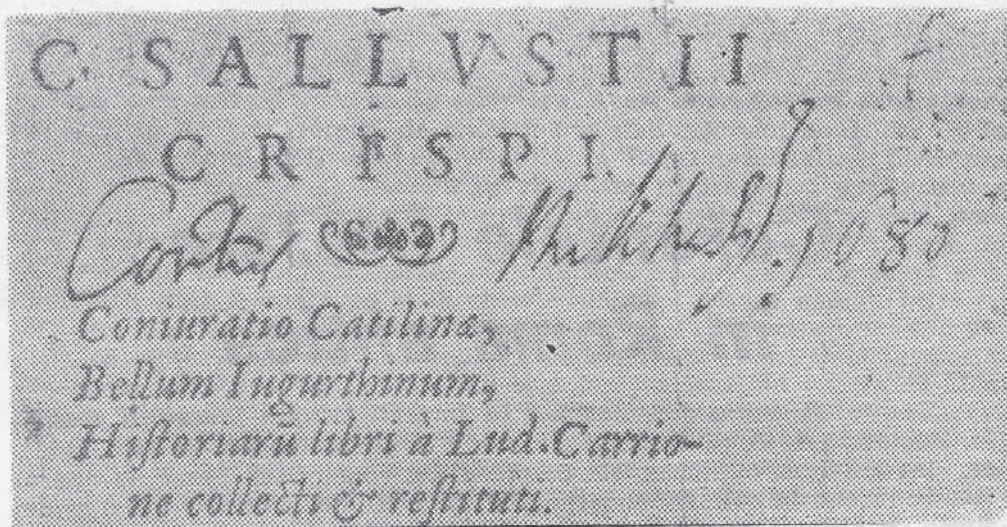 C. SALLVSTII
CRISPI.
1680
Coniuratio Catilinæ,
Bellum Iugurthinum,
Hiſtoriarū libri à Lud. Carrio-
ne collecti & reſtituti.